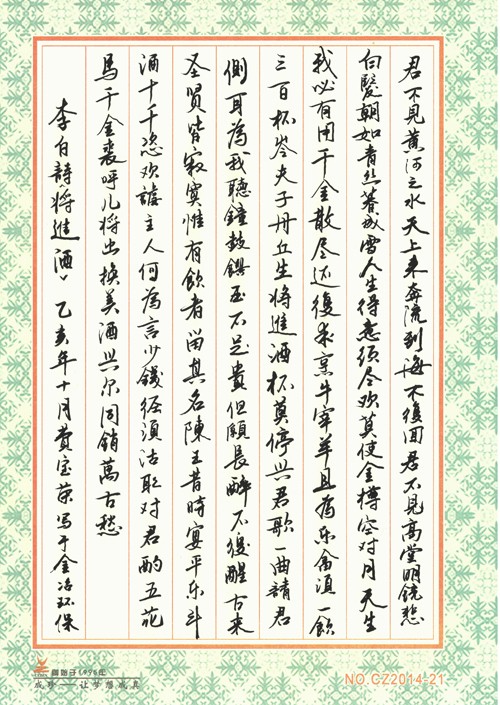 君不见黄河之水天上来奔流到海不復回君不见高堂明镜悲
白髮朝如青丝暮成雪人生得意须尽欢莫使金樽空对月天生
我必有用千金散尽还復来烹牛宰羊且为乐會须一飲
三百杯岑夫子丹丘生将進酒杯莫停与君歌一曲請君
側耳為我聽鐘鼓饌玉不足貴但願長醉不復醒古来
圣贤皆寂寞惟有飲者留其名陳王昔時宴平乐斗
酒十千恣欢謔主人何為言少錢徑須沽取对君酌五花
馬千金裘呼儿将出换美酒与尔同销萬古愁
李白詩《将進酒》乙亥年十月費宝荣写于金冶环保
始于1996年
成珍——让梦想成真
NO.CZ2014-21